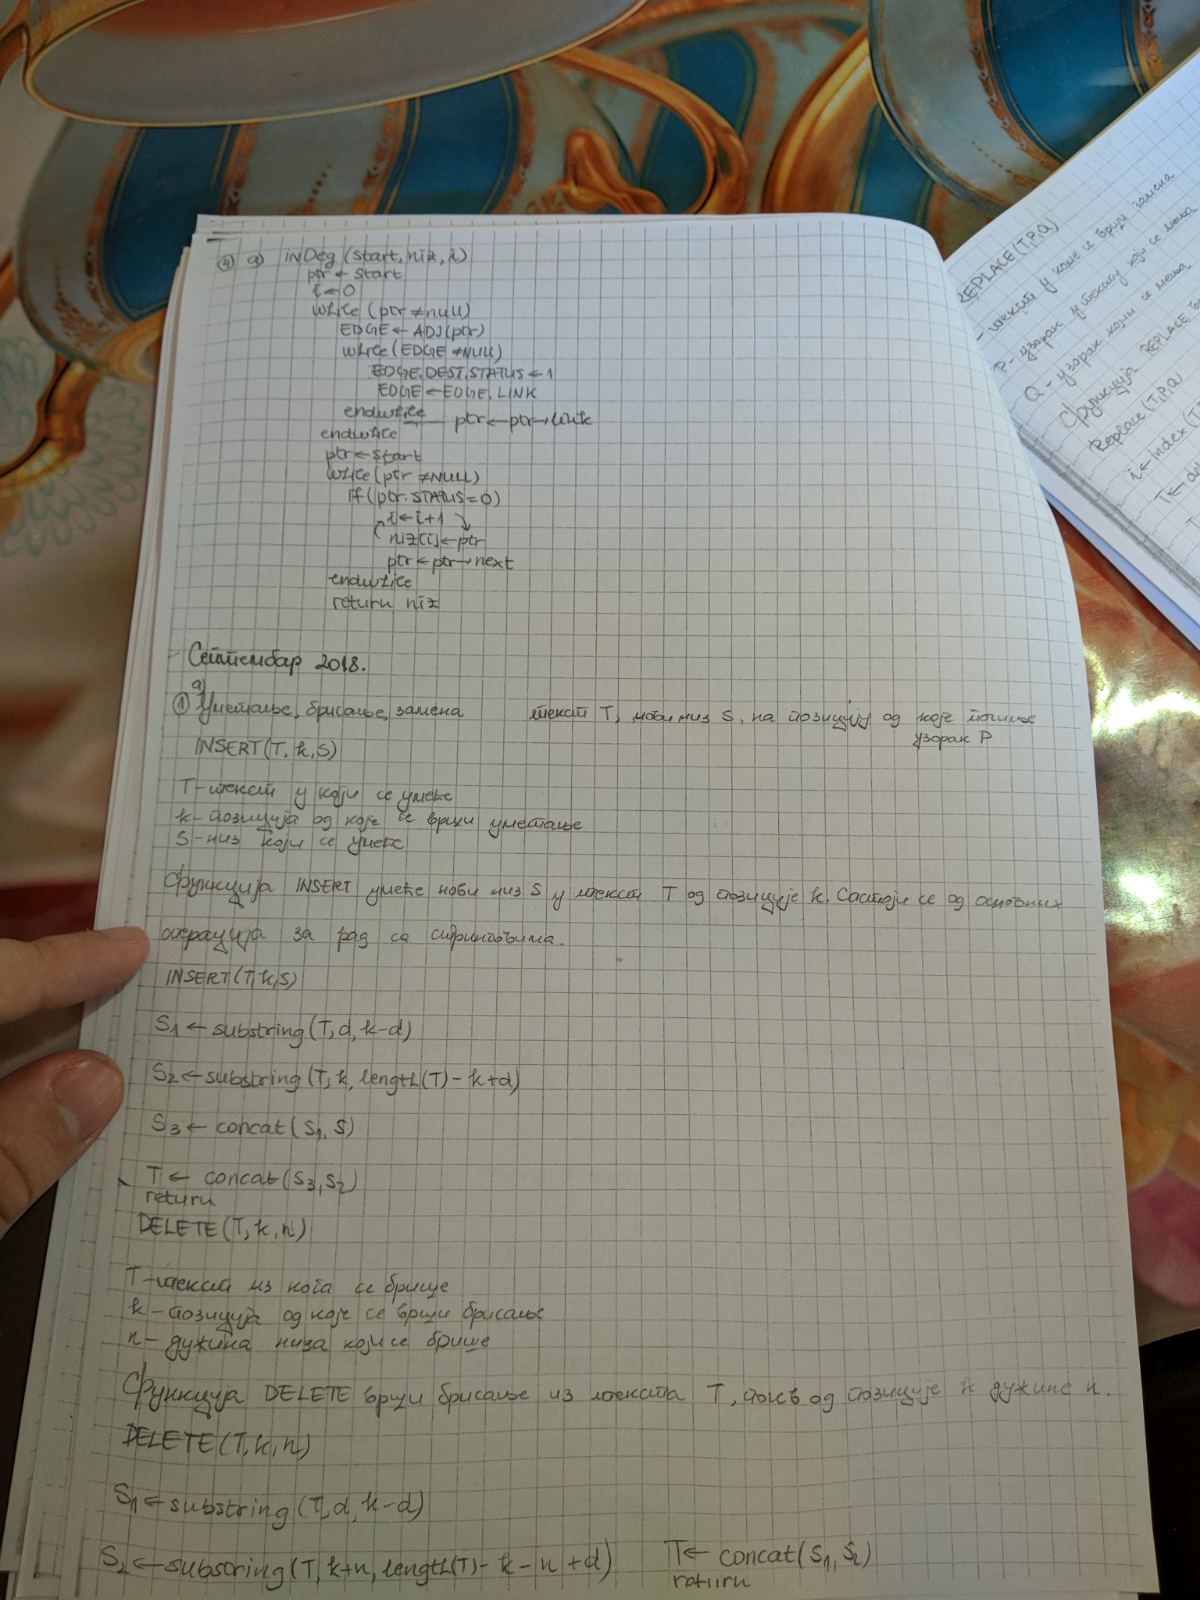 ④ a) INDeg (start, niz, i)
ptr ← start
i ← 0
while (ptr ≠ null)
EDGE ← ADJ(ptr)
while (EDGE ≠ NULL)
EDGE.DEST.STATUS ← 1
EDGE ← EDGE.LINK
endwhile ptr ← ptr → link
endwhile
ptr ← start
while (ptr ≠ NULL)
if (ptr.STATUS = 0)
i ← i + 1
niz[i] ← ptr
ptr ← ptr → next
endwhile
return niz
Септембар 2018.
① a) Уметање, брисање, замена текст T, нови низ S, на позицију од које почиње
узорак P
INSERT(T, k, S)
T - текст у који се умеће
k - позиција од које се врши уметање
S - низ који се умеће
Функција INSERT умеће нови низ S у текст T од позиције k. Састоји се од основних
операција за рад са стринговима.
INSERT(T, k, S)
S1 ← substring (T, d, k-d)
S2 ← substring (T, k, length(T) - k + d)
S3 ← concat (S1, S)
T ← concat (S3, S2)
return
DELETE (T, k, n)
T - текст из кога се брише
k - позиција од које се врши брисање
n - дужина низа који се брише
Функција DELETE врши брисање из текста T, од позиције k дужине n.
DELETE (T, k, n)
S1 ← substring (T, d, k-d)
S2 ← substring (T, k+n, length(T) - k - n + d) T ← concat (S1, S2)
return
REPLACE (T, P, Q)
- текст у коме се врши замена
P - узорак у тексту који се мења
Q - узорак којим се мења
Функција REPLACE
Replace (T, P, Q)
i ← index (T
T ← del